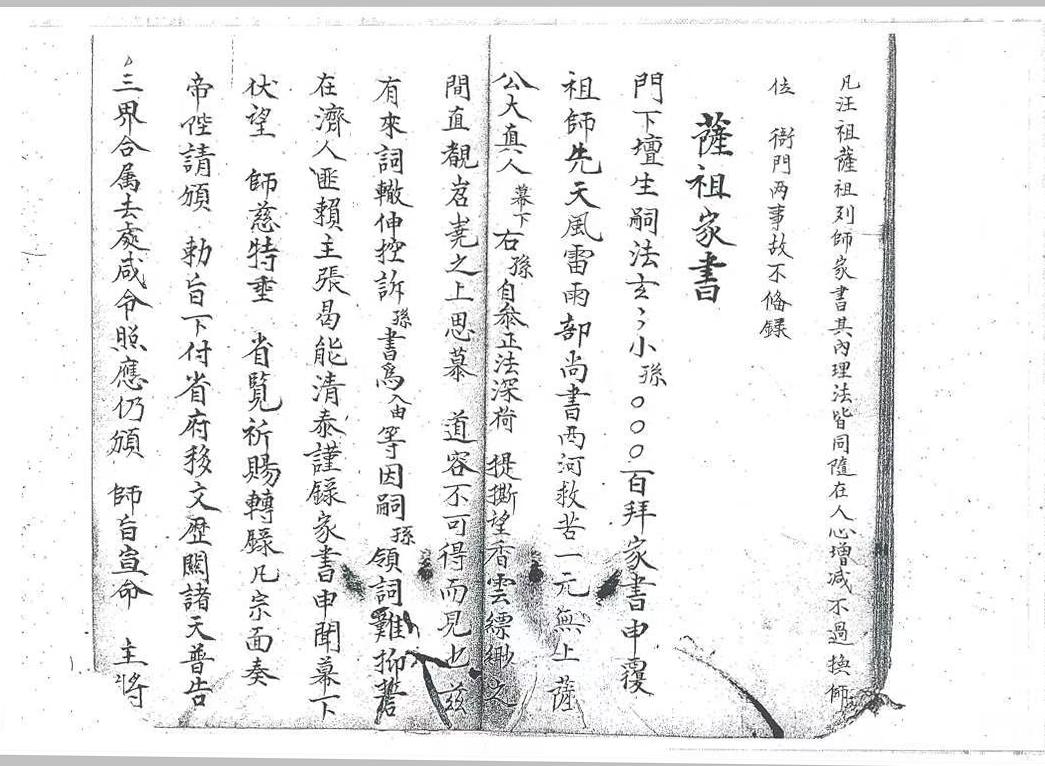 凡汪祖薩祖列師家書其內理法皆同隨在人心增减不過換師
位　衙門两事故不偹錄
薩祖家書
門下壇生嗣法玄〻小孫○○○百拜家書申覆
祖師先天風雷雨部尚書西河救苦一元無上薩
公大真人幕下右孫自叅正法深荷　提撕望香雲縹緲之
間直覩岧嶤之上思慕　道容不可得而見也兹
有來詞轍伸控訴孫書為等因嗣孫領詞難抑誓
在濟人匪賴主張曷能清泰謹錄家書申聞幕下
伏望　師慈特垂　省覧祈賜轉錄凡宗面奏
帝陛請頒　勅旨下付省府移文歷關諸天普告
三界合属去處咸令照應仍頒　師旨宣命　主將